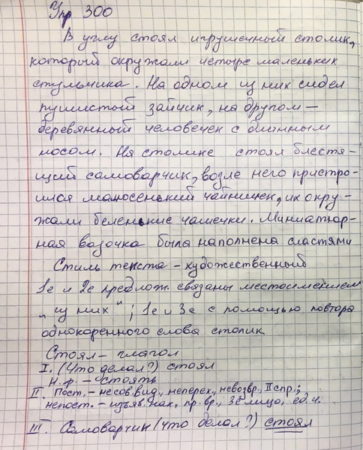 Упр 300
В углу стоял игрушечный столик,
который окружали четыре маленьких
стульчика. На одном из них сидел
пушистый зайчик, на другом –
деревянный человечек с длинным
носом. На столике стоял блестя-
щий самоварчик, возле него пристро-
ился малюсенький чайничек, их окру-
жали беленькие чашечки. Миниатюр-
ная вазочка была наполнена сластями
Стиль текста – художественный
1е и 2е предлож связаны местоимением
„из них"; 1е и 3е с помощью повтора
однокоренного слова столик
Стоял – глагол
I. (Что делал?) стоял
Н.ф. – стоять
II Пост. – несов вид, неперех, невозвр, II спр;
непост. – изъяв. нак, пр. вр, 3е лицо, ед ч.
III. Самоварчик (что делал?) стоял